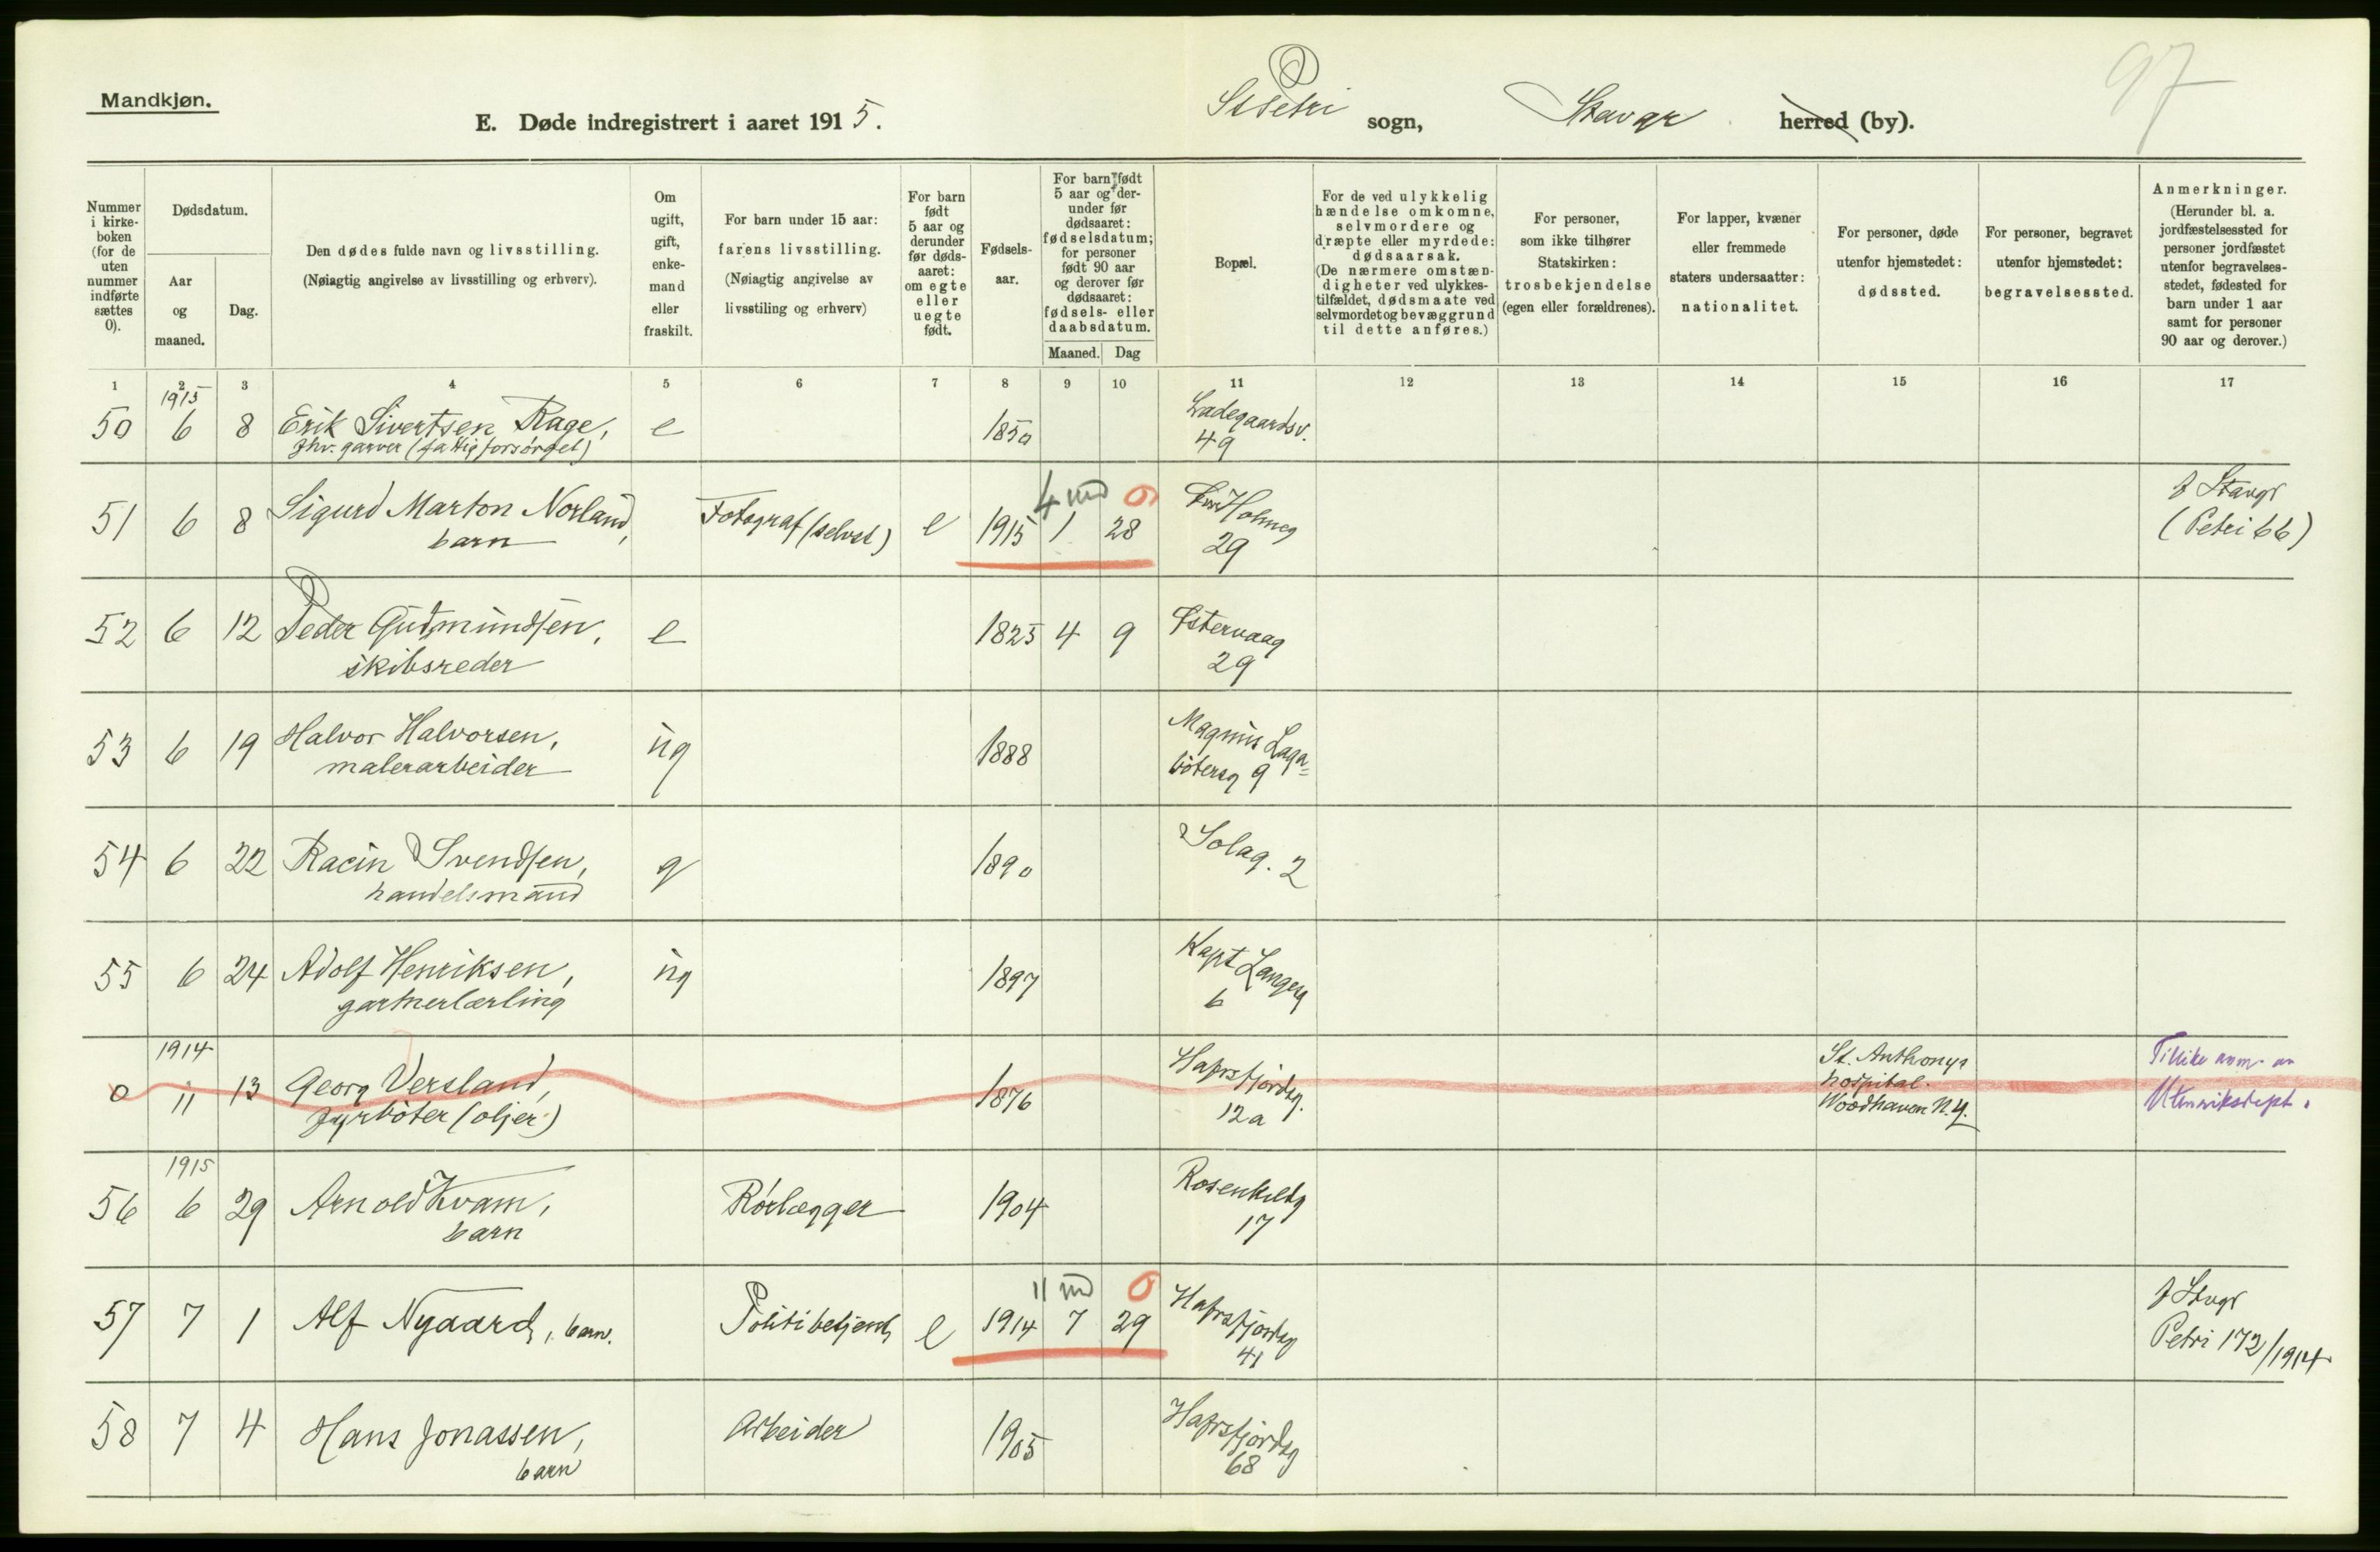 Mandkjøn.
97
E. Døde indregistrert i aaret 1915.
St Petri sogn, Stavgr herred (by).
Nummer i kirke-boken (for de uten nummer indførte sættes 0).
Dødsdatum.
Aar og maaned.
Dag.
Den dødes fulde navn og livsstilling.
(Nøiagtig angivelse av livsstilling og erhverv).
Om ugift, gift, enke-mand eller fraskilt.
For barn under 15 aar:
farens livsstilling.
(Nøiagtig angivelse av livsstiling og erhverv)
For barn født 5 aar og derunder før døds-aaret: om egte eller uegte født.
Fødsels-aar.
For barn født 5 aar og der-under før dødsaaret: fødselsdatum; for personer født 90 aar og derover før dødsaaret: fødsels- eller daabsdatum.
Maaned. Dag
Bopæl.
For de ved ulykkelig hændelse omkomne, selvmordere og dræpte eller myrdede: dødsaarsak.
(De nærmere omstæn-digheter ved ulykkes-tilfældet, dødsmaate ved selvmordet og bevæggrund til dette anføres.)
For personer, som ikke tilhører Statskirken: trosbekjendelse (egen eller forældrenes).
For lapper, kvæner eller fremmede staters undersaatter: nationalitet.
For personer, døde utenfor hjemstedet: dødssted.
For personer, begravet utenfor hjemstedet: begravelsessted.
Anmerkninger.
(Herunder bl. a. jordfæstelsessted for personer jordfæstet utenfor begravelses-stedet, fødested for barn under 1 aar samt for personer 90 aar og derover.)
1 2 3 4 5 6 7 8 9 10 11 12 13 14 15 16 17
1915
50 6 8 Erik Sivertsen Rage, e 1850 Ladegaardsv. 49
fhv. garver (fattigforsørget)
4 md 0
51 6 8 Sigurd Marton Norland, Fotograf (selvst) e 1915 1 28 Holmeg 29 f Stavgr
barn (Petri 66)
52 6 12 Peder Gudmundsen, e 1825 4 9 Østervaag 29
skibsreder
53 6 19 Halvor Halvorsen, ug 1888 Magnus Laga=
malerarbeider bøtersg 9
54 6 22 Racin Svendsen, g 1890 Solag. 2
handelsmand
55 6 24 Adolf Henriksen, ug 1897 Kapt Langeg 6
gartnerlærling
1914
0 11 13 Georg Versland, 1876 Hafrsfjordsg. 12a St. Anthonys hospital. Woodhaven N.Y.
fyrbøter (oljer)
Utenriksdept.
1915
56 6 29 Arnold Kvam, Rørlægger 1904 Rosenkildg 17
barn
11 md 0
57 7 1 Alf Nygaard, barn. Politibetjent e 1914 7 29 Hafrsfjordsg 41 f Stvgr
Petri 172/1914
58 7 4 Hans Jonassen, Arbeider 1905 Hafrsfjordsg 68
barn